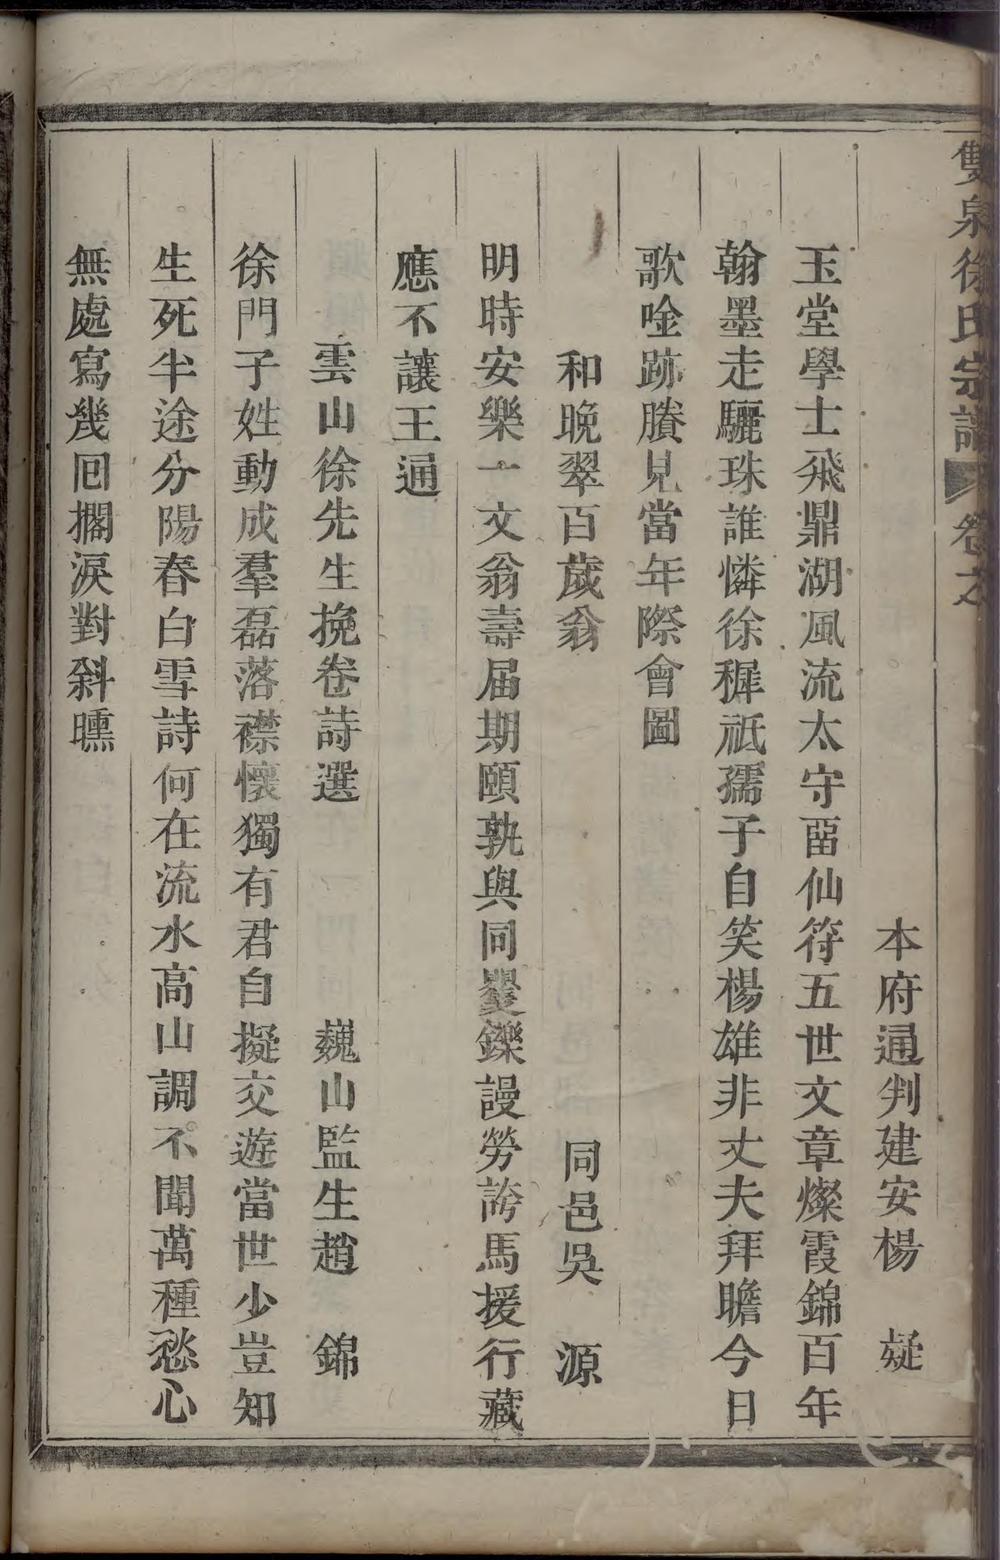 雙泉徐氏宗譜 卷之
本府通判建安楊 凝
玉堂學士飛鼎湖風流太守畱仙符五世文章燦霞錦百年
翰墨走驪珠誰憐徐穉祇孺子自笑楊雄非丈夫拜瞻今日
歌唫跡賸見當年際會圖
和晚翠百歲翁 同邑吳 源
明時安樂一文翁壽届期頤孰與同矍鑠謾勞誇馬援行藏
應不讓王通
雲山徐先生挽卷詩選 巍山監生趙 錦
徐門子姓動成羣磊落襟懷獨有君自擬交遊當世少豈知
生死半途分陽春白雪詩何在流水高山調不聞萬種愁心
無處寫幾囘擱淚對斜曛